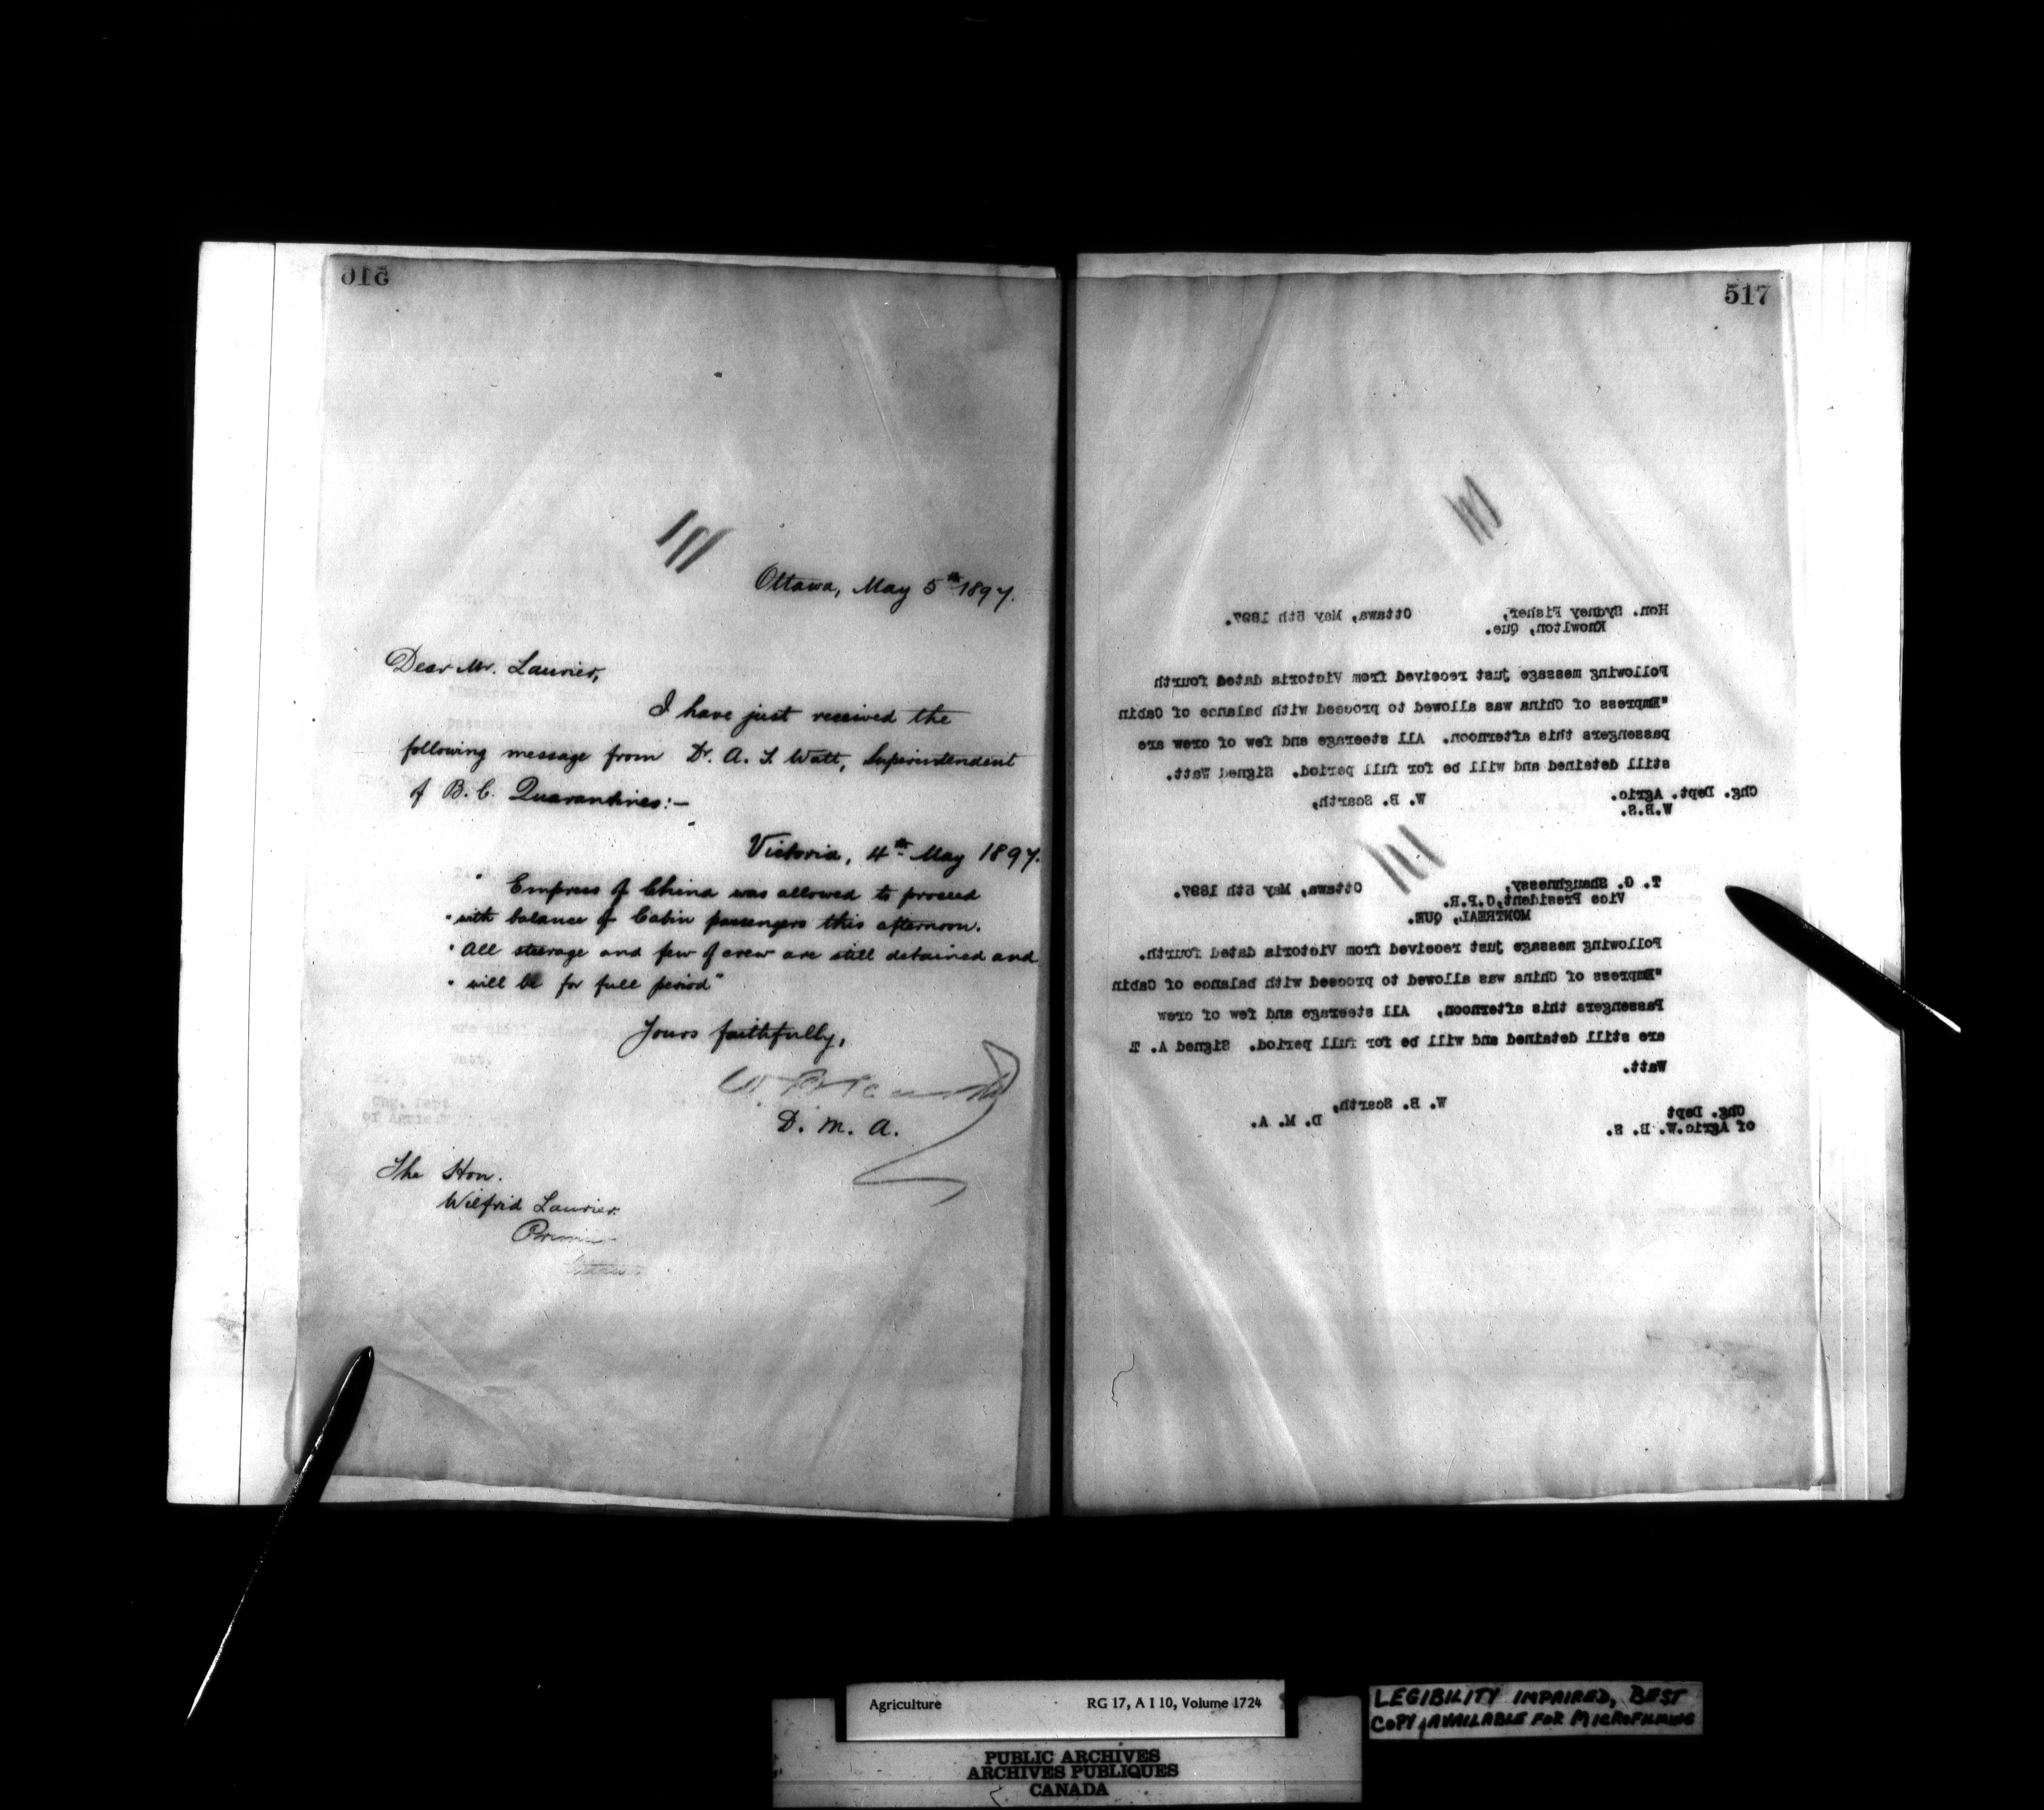 516
Ottawa, May 5th 1897.
Dear Mr. Laurier,
I have just received the
following message from Dr. A. T. Watt, Superintendent
of B. C. Quarantines:—
Victoria, 4th May 1897.
" Empress of China was allowed to proceed
" with balance of Cabin passengers this afternoon.
" All steerage and few of crew are still detained and
" will be for full period"
Yours faithfully,
W. B. Scarth
D. M. A.
The Hon.
Wilfrid Laurier
Premier
Ottawa
517
Hon. Sydney Fisher, Ottawa, May 5th 1897.
Knowlton, Que.
Following message just received from Victoria dated fourth
"Empress of China was allowed to proceed with balance of Cabin
passengers this afternoon. All steerage and few of crew are
still detained and will be for full period. Signed Watt.
Chg. Dept. Agric. W. B. Scarth,
W.B.S.
T. G. Shaughnessy, Ottawa, May 5th 1897.
Vice President,C.P.R.
MONTREAL, QUE.
Following message just received from Victoria dated fourth.
"Empress of China was allowed to proceed with balance of Cabin
Passengers this afternoon, All steerage and few of crew
are still detained and will be for full period. Signed A. T
Watt.
W. B. Scarth,
Chg. Dept D. M. A.
of Agric.W. B. S.
Agriculture RG 17, A I 10, Volume 1724
LEGIBILITY IMPAIRED, BEST
COPY AVAILABLE FOR MICROFILMING
PUBLIC ARCHIVES
ARCHIVES PUBLIQUES
CANADA